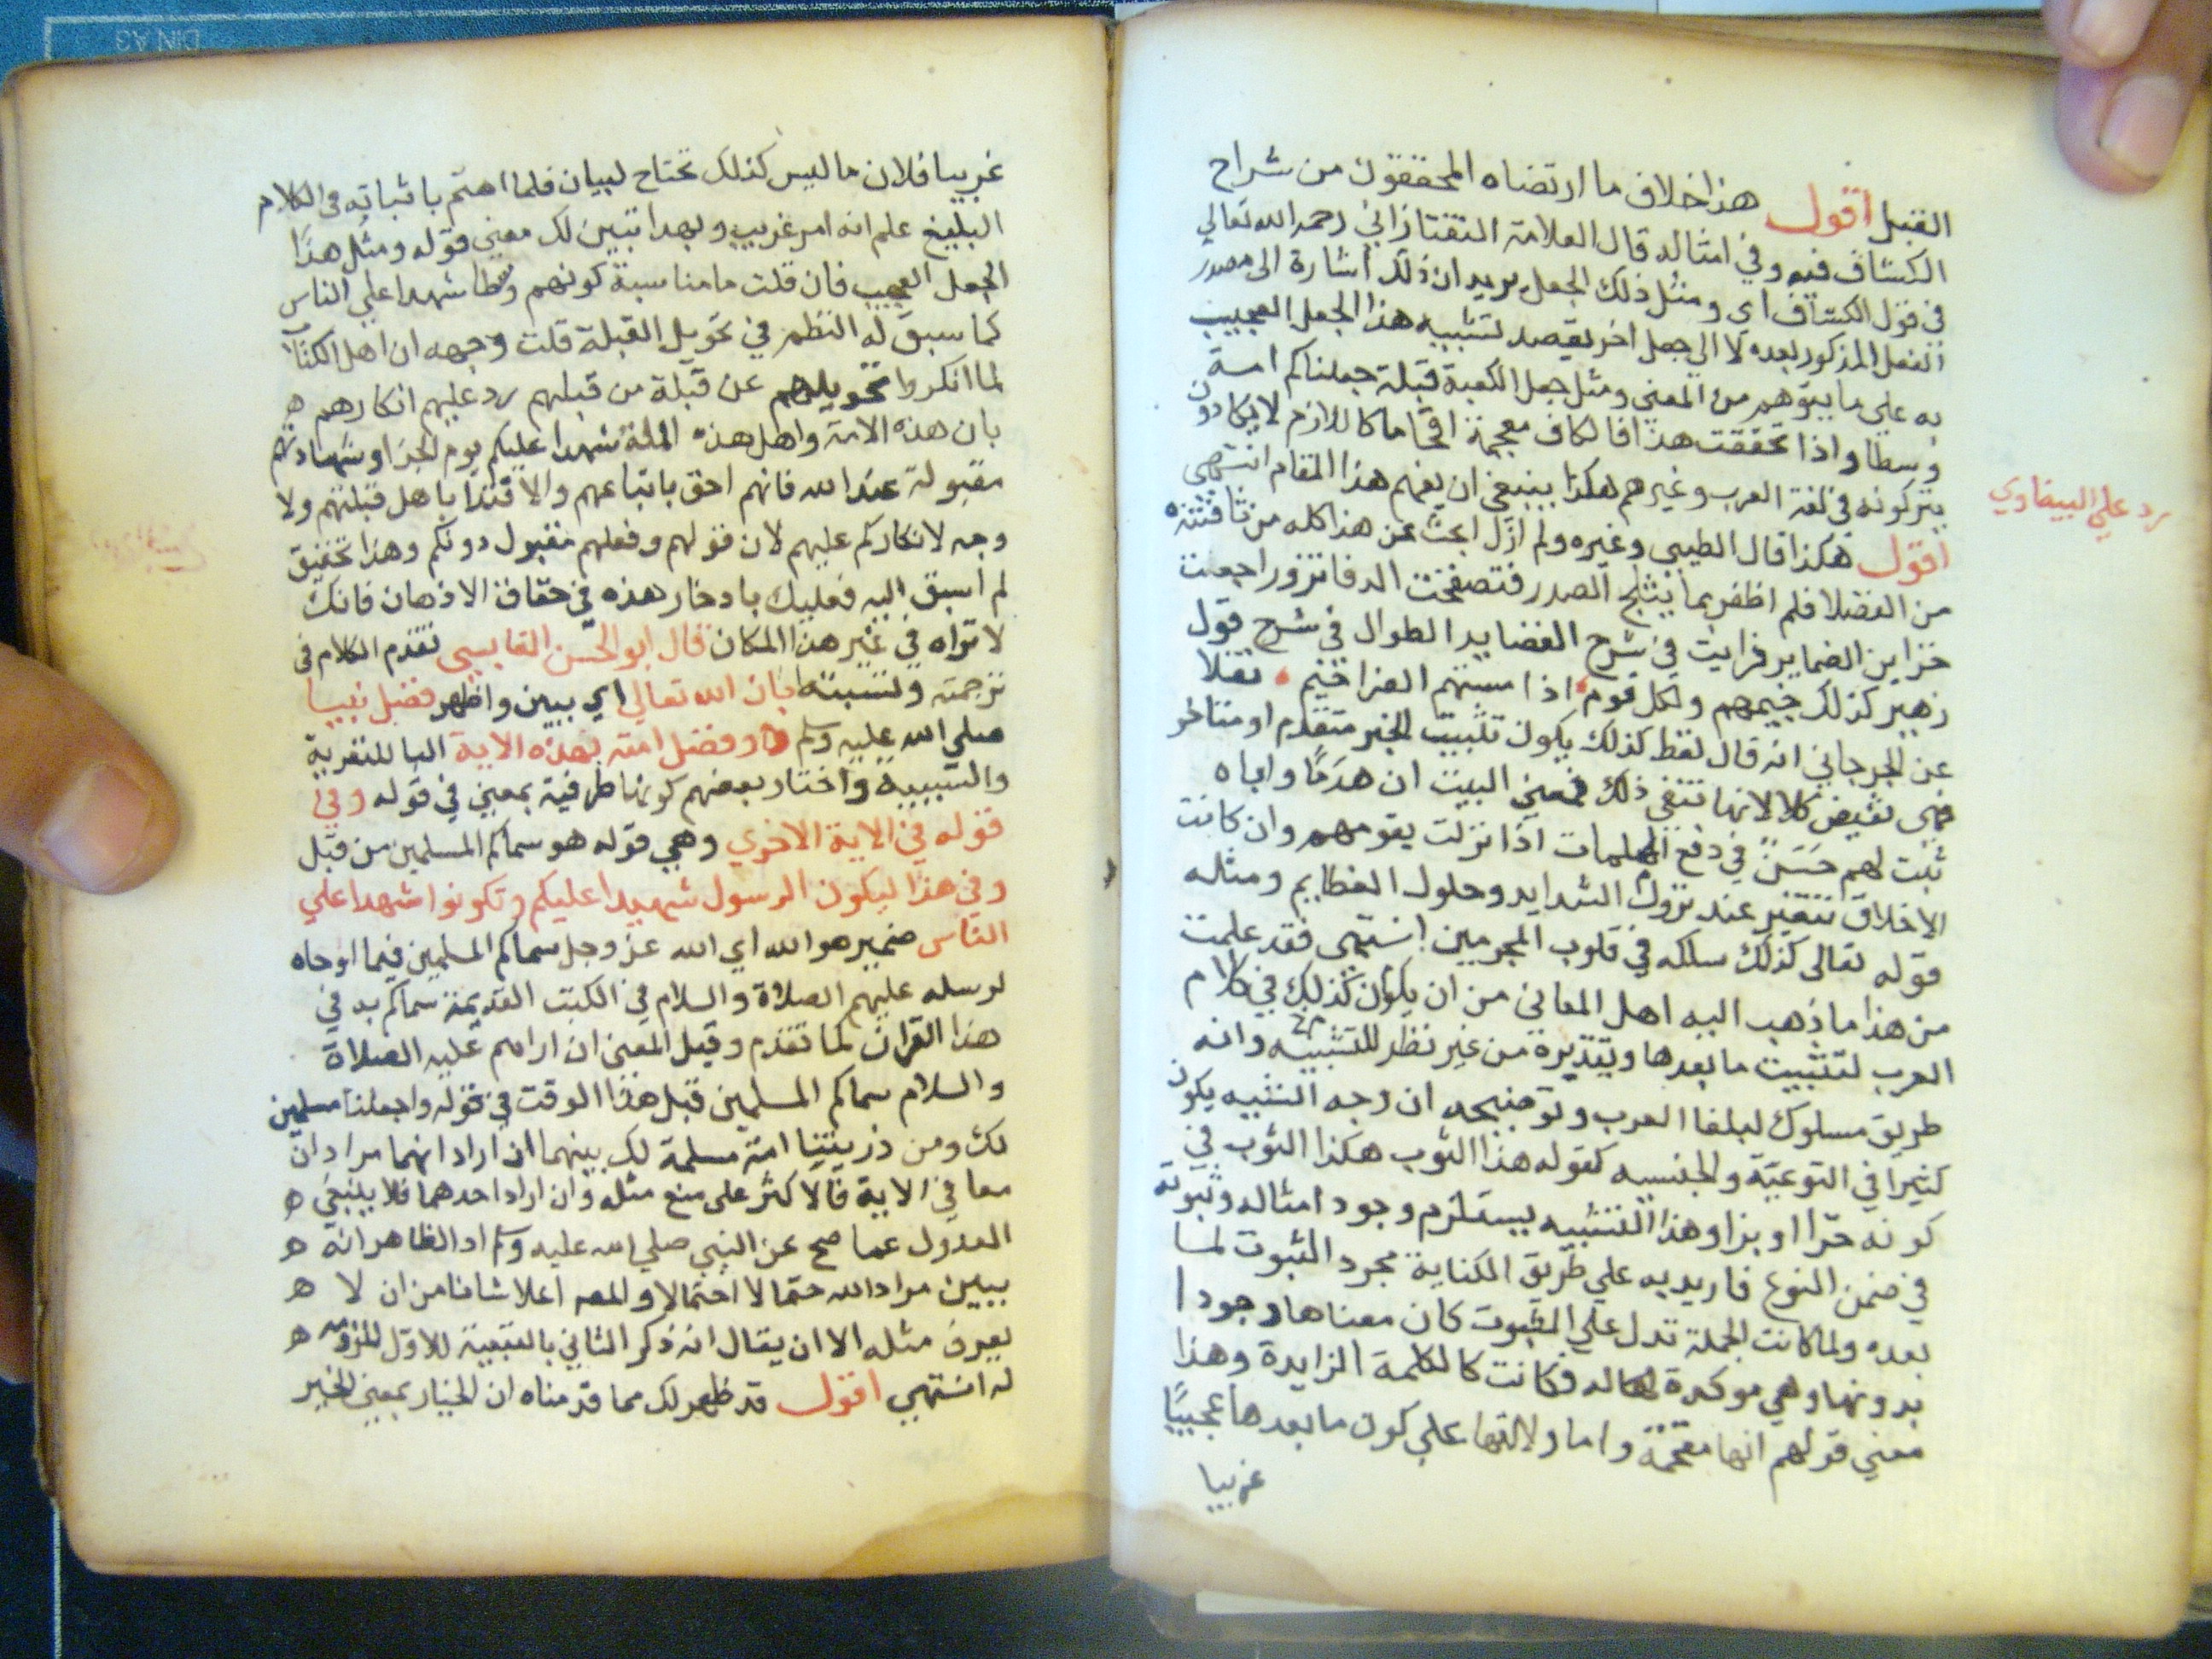 القبيل اقول هذا خلاف ما ارتضاه المحققون من شراح
الكشاف فيه وفي امثاله قال العلامة التفتازاني رحمه الله تعالي
في قول الكشاف اي ومثل ذلك الجعل يريد ان ذلك اشارة الى مصدر
الفعل المذكور بعده لا الي جعل اخر يقصد تشبيه هذا الجعل العجيب
به علي ما يتوهم من المعني ومثل جعل الكعبة قبلة جعلناكم امة
وسطا واذا تحققت هذا فالكاف مقحمة اقحاما كاللازم لا يكادون
يتركونه في لغة العرب وغيرهم هكذا ينبغي ان يفهم هذا المقام انتهى
رد علي البيضاوي
اقول هكذا قال الطيبي وغيره ولم ازل ابحث عن هذا كله من ثافنته
من الفضلا فلم اظفر بما يثلج الصدر فتصفحت الدفاتر وراجعت
خزاين الضماير فرايت في شرح القصايد الطوال في شرح قول
زهير كذلك خيمهم ولكل قوم اذا مستهم الضرا خيم نقلا
عن الجرجاني انه قال لفظ كذلك يكون تثبيت الخبر متقدم او متاخر
فهى نقيض كلا لانها تنفى ذلك فمعني البيت ان هدما واباه
ثبت لهم حسن في دفع الملمات اذا نزلت بقومهم وان كانت
الاخلاق تتغير عند نزول الشدايد وحلول العظايم ومثله
قوله تعالى كذلك سلكه في قلوب المجرمين انتهى فقد علمت
من هذا ما ذهب اليه اهل المعانى من ان يكون كذلك في كلام
العرب لتثبيت ما بعدها وتقديره من غير نظر للتشبيه وانه
طريق مسلوك لبلغا العرب وتوضيحه ان وجه الشبه يكون
كثيرا في النوعية والجنسيه كقوله هذا الثوب هكذا الثوب في
كونه خزا او بزا وهذا التشبيه يستلزم وجود امثاله وثبوته
في ضمن النوع فاريد به علي طريق الكناية مجرد الثبوت لما
بعده ولما كانت الجملة تدل علي الثبوت كان معناها وجودا
بدونها وهي موكدة له فكانت كالكلمة الزايدة وهذا
معني قولهم انها مقحمة واما دلالتها علي كون ما بعدها عجيبا
غريبا
غريبا فلان ما ليس كذلك تحتاح لبيان فلما اهتم باثباته في الكلام
البليغ علم انه امر غريب وبهدا تبين لك معني قوله ومثل هذا
الجعل العجيب فان قلت ما مناسبة كونهم وسطا شهدا علي الناس
كما سبق له النظم في تحويل القبلة قلت وجهه ان اهل الكتاب
لما انكروا تحويلهم عن قبلة من قبلهم رد عليهم انكارهم ه
بان هذه الامة واهل هذه الملة شهدا عليكم يوم الجزا وشهادتهم
مقبولة عند الله فانهم احق باتباعهم والاقتدا باهل قبلتهم ولا
وجه لانكاركم عليهم لان قولهم وفعلهم مقبول دونكم وهذا تحقيق
لم اسبق اليه فعليك بادخار هذه في حقاق الاذهان فانك
لا تراه في غير هذا المكان قال ابو الحسن القابسي تقدم الكلام فى
ترجمته ونسبته ابان الله تعالي اي بين واظهر فضل نبينا
صلي الله عليه وسلم وفضل امته بهذه الاية البا للتعدية
والسببية واختار بعضهم كونها ظرفية بمعني في قوله وفي
قوله في الاية الاخري وهي قوله هو سماكم المسلمين من قبل
وفي هذا ليكون الرسول شهيدا عليكم وتكونوا شهدا علي
الناس ضمير هو الله اي الله عز وجل سماكم المسلمين فيما اوحاه
لرسله عليهم الصلاة والسلام في الكتب القديمة سماكم به في
هذا القران لما تقدم وقيل المعني ان ابراهيم عليه الصلاة
والسلام سماكم المسلمين قبل هذا الوقت في قوله واجعلنا مسلمين
لك ومن ذريتنا امة مسلمة لك بينهما ان اراد انهما مرادان
معا في الاية فالاكثر على منع مثله وان اراد احدهما فلا ينبغي ه
العدول عما صح عن النبي صلي الله عليه وسلم اد الظاهر انه ه
يبين مراد الله حتما لا احتمالا والمص اعلا شانا من ان لا ه
يعرف مثله الا ان يقال انه ذكر الثاني بالتبعية للاول للزومه ه
له انتهي اقول قد ظهر لك مما قدمناه ان الخيار بمعني الخير